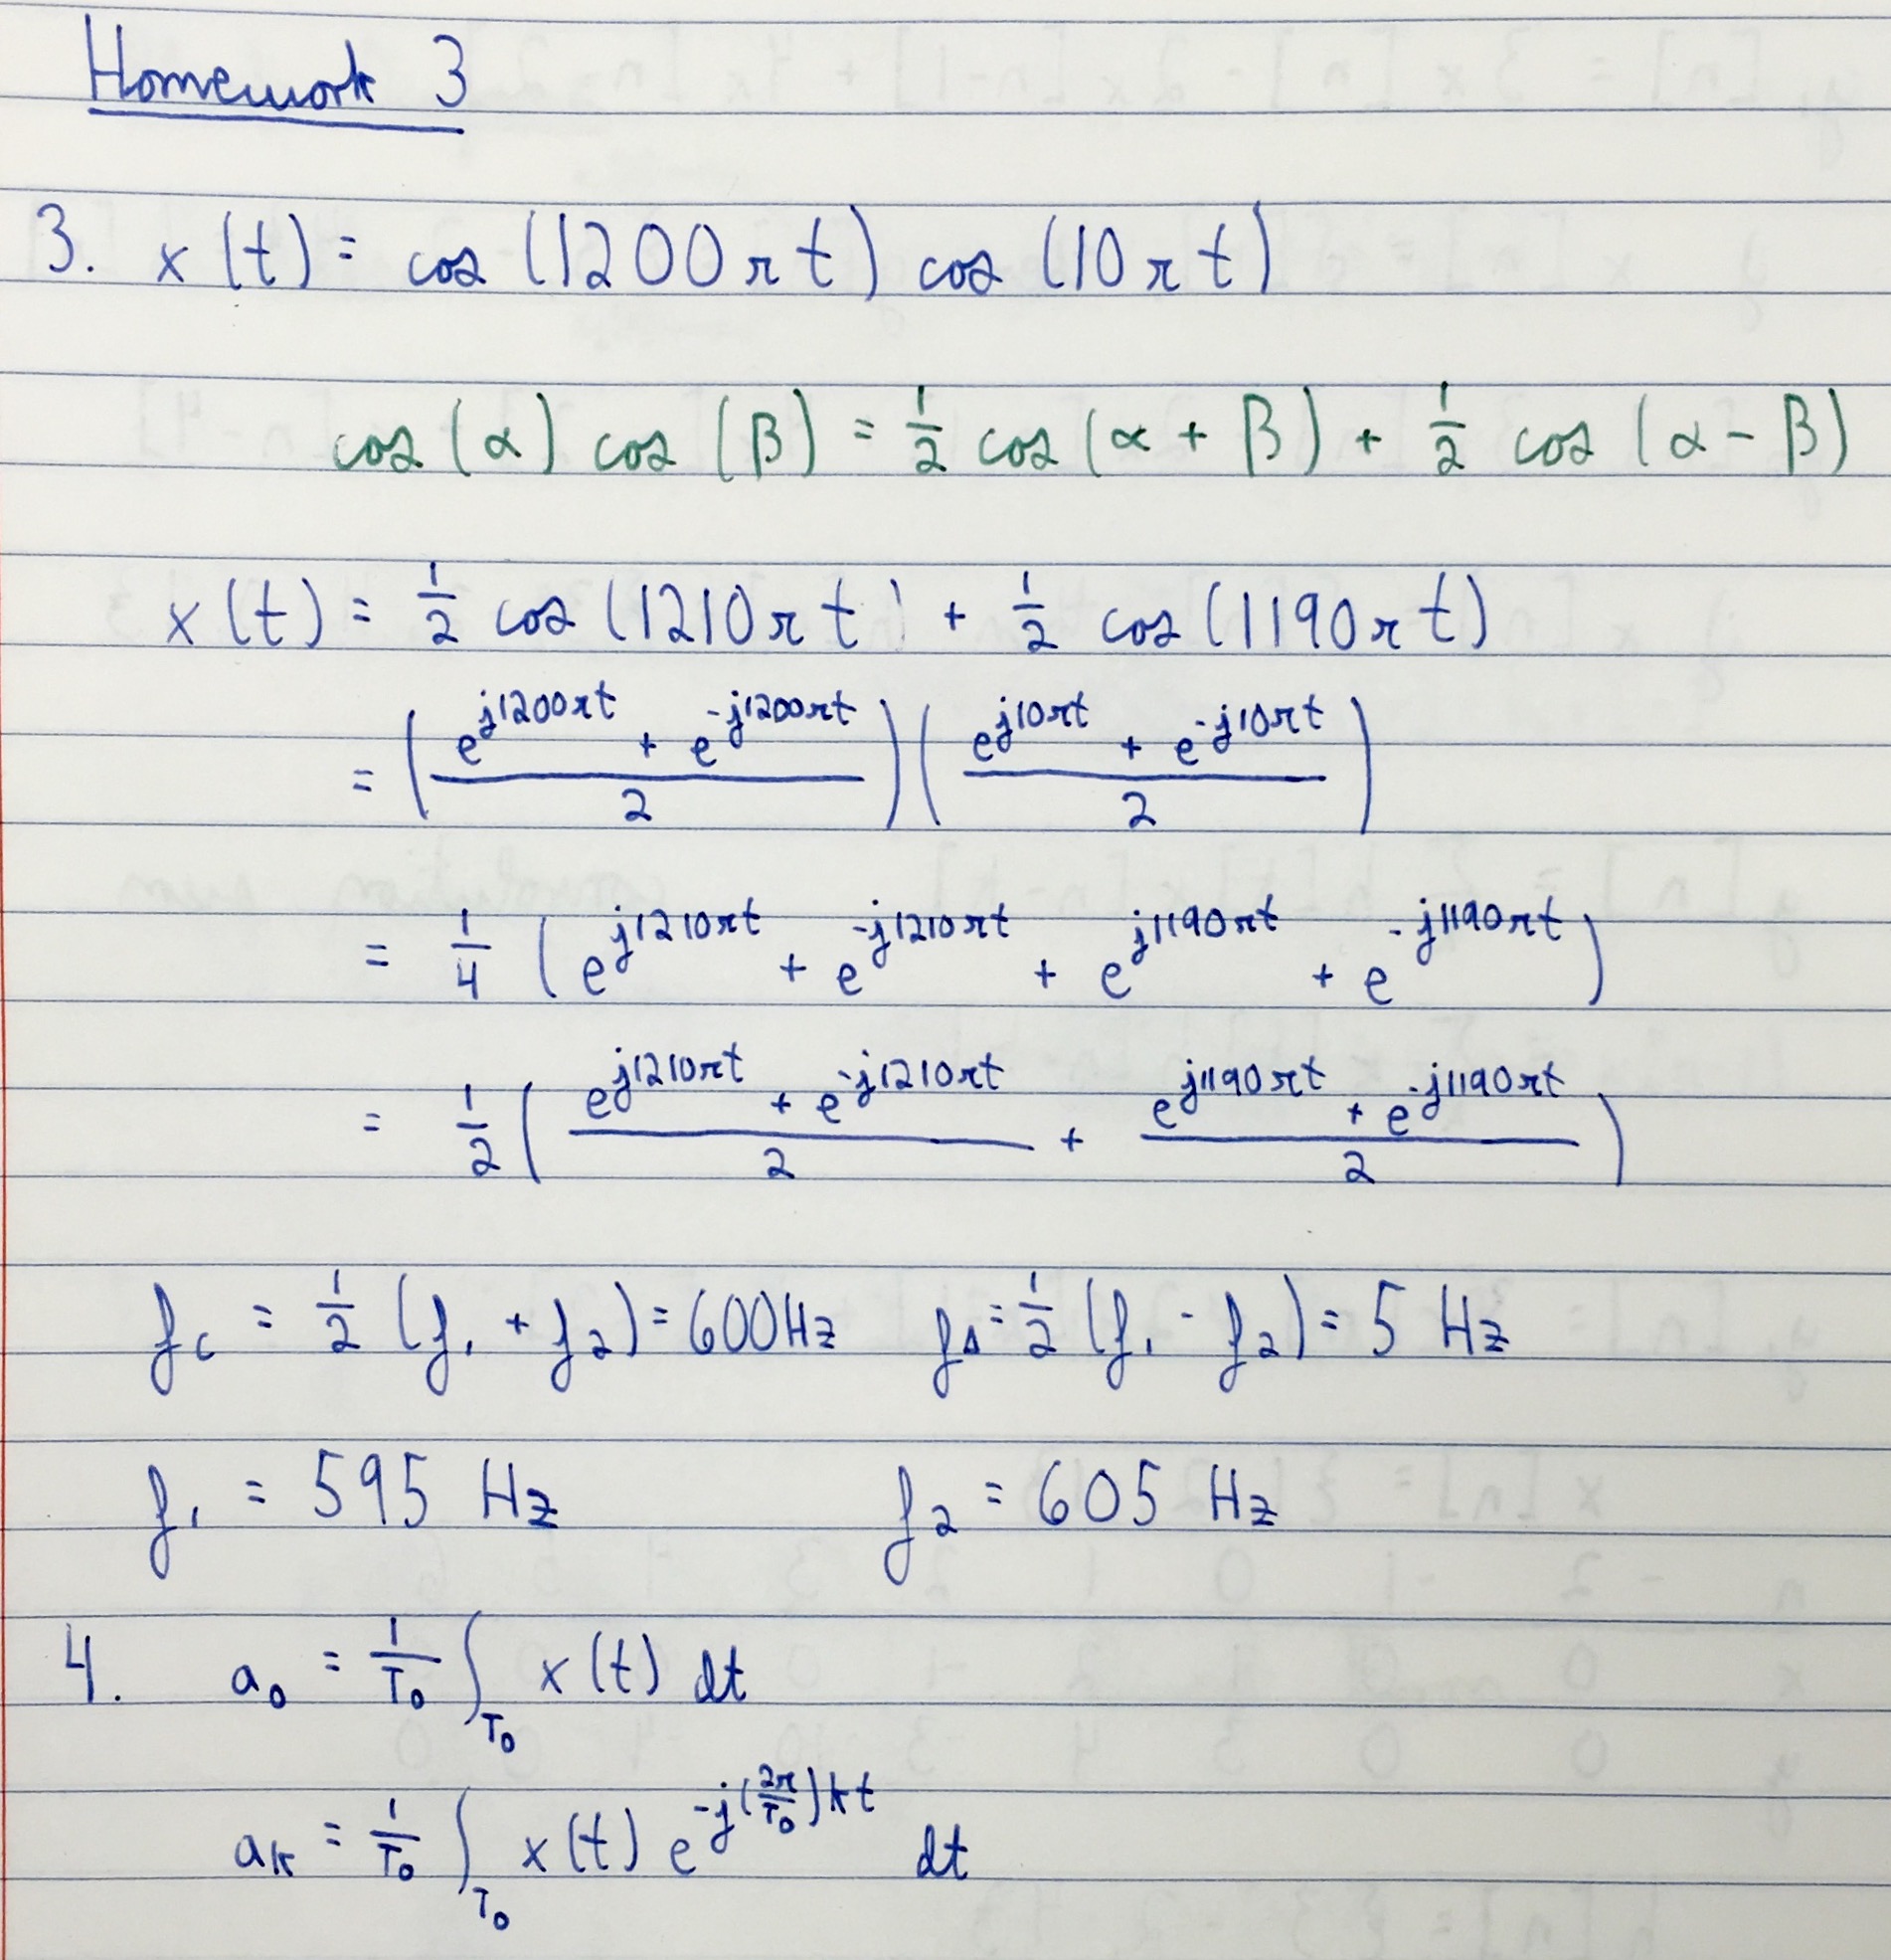 Homework 3
3. x(t) = cos(1200πt) cos(10πt)
cos(α) cos(β) = 1/2 cos(α + β) + 1/2 cos(α - β)
x(t) = 1/2 cos(1210πt) + 1/2 cos(1190πt)
= ((e^{j1200πt} + e^{-j1200πt})/2) ((e^{j10πt} + e^{-j10πt})/2)
= 1/4 (e^{j1210πt} + e^{-j1210πt} + e^{j1190πt} + e^{-j1190πt})
= 1/2 ((e^{j1210πt} + e^{-j1210πt})/2 + (e^{j1190πt} + e^{-j1190πt})/2)
f_c = 1/2 (f_1 + f_2) = 600Hz f_Δ = 1/2 (f_1 - f_2) = 5 Hz
f_1 = 595 Hz f_2 = 605 Hz
4. a_0 = 1/T_0 ∫_{T_0} x(t) dt
a_k = 1/T_0 ∫_{T_0} x(t) e^{-j(2π/T_0)kt} dt